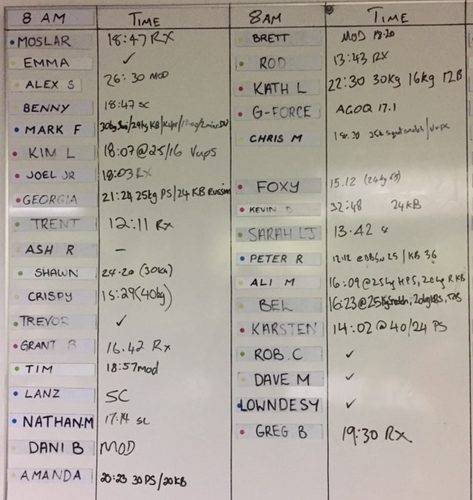 8 AM TIME
MOSLAR 18:47 RX
EMMA ✓
ALEX S 26:30 MOD
BENNY 18:47 SC
MARK F
KIM L 18:07 @ 25/16 V ups
JOEL JR 18:03 RX
GEORGIA 21:24 25kg PS/24 KB Russian
TRENT 12:11 Rx
ASH R –
SHAWN 24:20 (30kg)
CRISPY 15:29 (40kg)
TREVOR ✓
GRANT B 16.42 Rx
TIM 18:57 Mod
LANZ SC
NATHAN.M 17:14 SC
DANI B MOD
AMANDA 20:23 30 PS/20KB
8AM TIME
BRETT MOD 18:20
ROD 13:43 RX
KATH L 22:30 30kg 16kg 12B
G-FORCE AGOQ 17.1
CHRIS M 18:30
FOXY 15.12
KEVIN D 32:48 24KB
SARAH LJ 13.42
PETER R 25 / KB 36
ALI M 16:09 @ 25kg HPS, 20kg R KB
BEL 16:23 @ 25kg
KARSTEN 14:02 @ 40/24 PS
ROB.C ✓
DAVE M ✓
LOWNDESY ✓
GREG B 19:30 RX